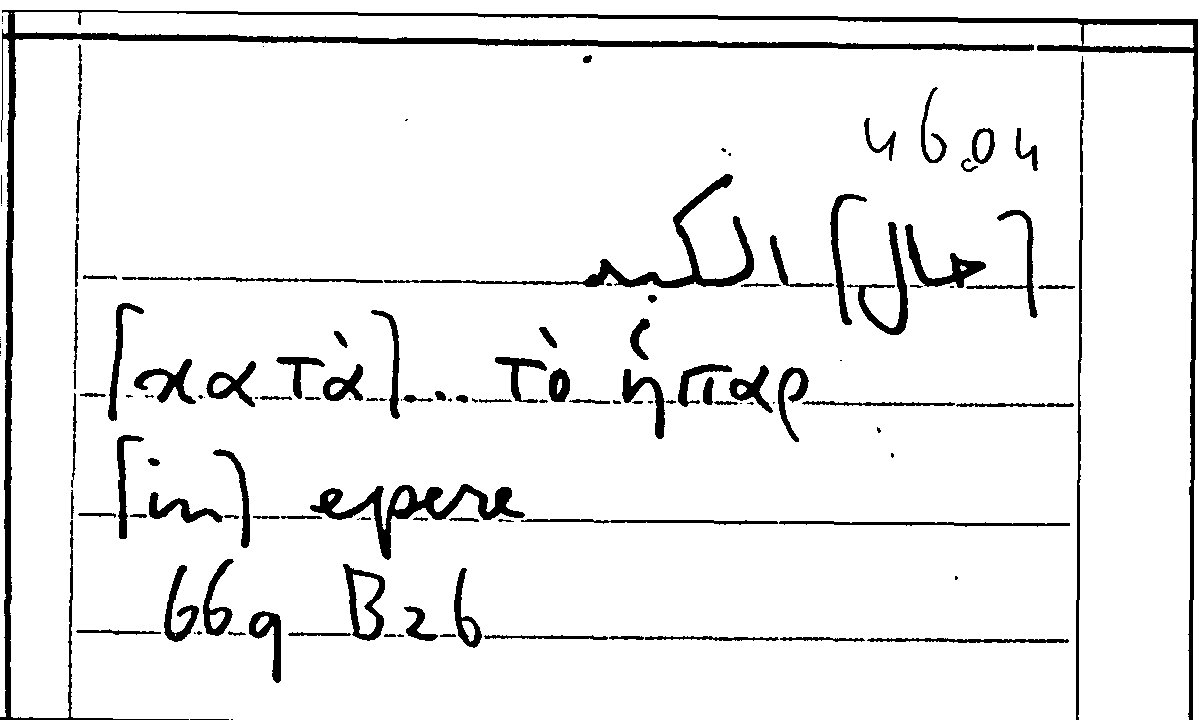 4604
[حال] الكبد
[κατὰ]... τὸ ἧπαρ
[in]
669 B26